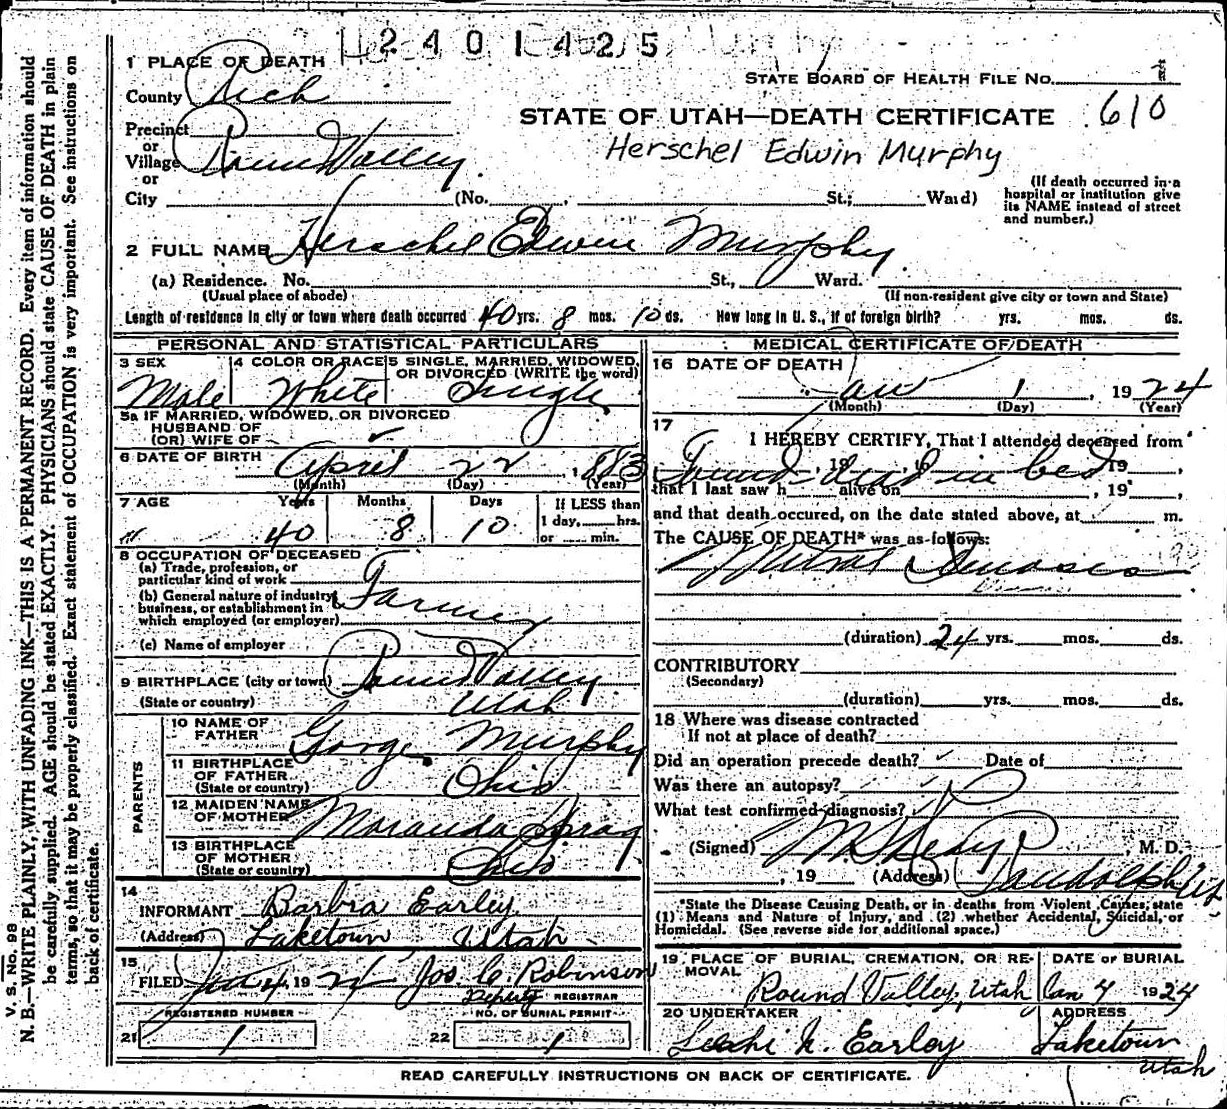 2401425
1 PLACE OF DEATH
STATE BOARD OF HEALTH FILE NO.
County Rich
STATE OF UTAH—DEATH CERTIFICATE 610
Precinct
or
Village Round Valley
Herschel Edwin Murphy
or
City (No. St.; Ward)
(If death occurred in a
hospital or institution give
its NAME instead of street
and number.)
2 FULL NAME Herschel Edwin Murphy
(a) Residence. No. St., Ward.
(Usual place of abode) (If non-resident give city or town and State)
Length of residence in city or town where death occurred 40 yrs. 8 mos. 10 ds. How long in U. S., if of foreign birth? yrs. mos. ds.
PERSONAL AND STATISTICAL PARTICULARS
3 SEX
Male
4 COLOR OR RACE
White
5 SINGLE, MARRIED, WIDOWED,
OR DIVORCED (WRITE the word)
Single
5a IF MARRIED, WIDOWED, OR DIVORCED
HUSBAND OF
(OR) WIFE OF
6 DATE OF BIRTH
April 22, 1883
(Month) (Day) (Year)
7 AGE Years Months Days
40 8 10
If LESS than
1 day, hrs.
or min.
8 OCCUPATION OF DECEASED
(a) Trade, profession, or
particular kind of work
(b) General nature of industry,
business, or establishment in
which employed (or employer)
Farmer
(c) Name of employer
9 BIRTHPLACE (city or town) Round Valley
(State or country) Utah
PARENTS
10 NAME OF
FATHER George Murphy
11 BIRTHPLACE
OF FATHER
(State or country) Ohio
12 MAIDEN NAME
OF MOTHER Maranda
13 BIRTHPLACE
OF MOTHER
(State or country) Ohio
14
INFORMANT Barbra Earley
(Address) Laketown Utah
15
FILED Jan 4, 1924 Jos. C. Robinson
Deputy REGISTRAR
REGISTERED NUMBER
21 1
NO. OF BURIAL PERMIT
22 1
MEDICAL CERTIFICATE OF DEATH
16 DATE OF DEATH
Jan 1, 1924
(Month) (Day) (Year)
17
I HEREBY CERTIFY, That I attended deceased from
Found dead in bed , 19 , 19 ,
that I last saw h alive on , 19 ,
and that death occured, on the date stated above, at m.
The CAUSE OF DEATH* was as follows:
Mitral Stenosis 90
(duration) 24 yrs. mos. ds.
CONTRIBUTORY
(Secondary)
(duration) yrs. mos. ds.
18 Where was disease contracted
If not at place of death?
Did an operation precede death? Date of
Was there an autopsy?
What test confirmed diagnosis?
(Signed) , M. D.
, 19 (Address) Randolph Ut
*State the Disease Causing Death, or in deaths from Violent Causes, state
(1) Means and Nature of Injury, and (2) whether Accidental, Suicidal, or
Homicidal. (See reverse side for additional space.)
19 PLACE OF BURIAL, CREMATION, OR RE-
MOVAL
Round Valley, Utah
DATE OF BURIAL
Jan 4 1924
20 UNDERTAKER
Leahi N. Earley
ADDRESS
Laketown
Utah
READ CAREFULLY INSTRUCTIONS ON BACK OF CERTIFICATE.
V. S. No. 98
N. B.—WRITE PLAINLY, WITH UNFADING INK—THIS IS A PERMANENT RECORD. Every item of information should
be carefully supplied. AGE should be stated EXACTLY. PHYSICIANS should state CAUSE OF DEATH in plain
terms, so that it may be properly classified. Exact statement of OCCUPATION is very important. See instructions on
back of certificate.